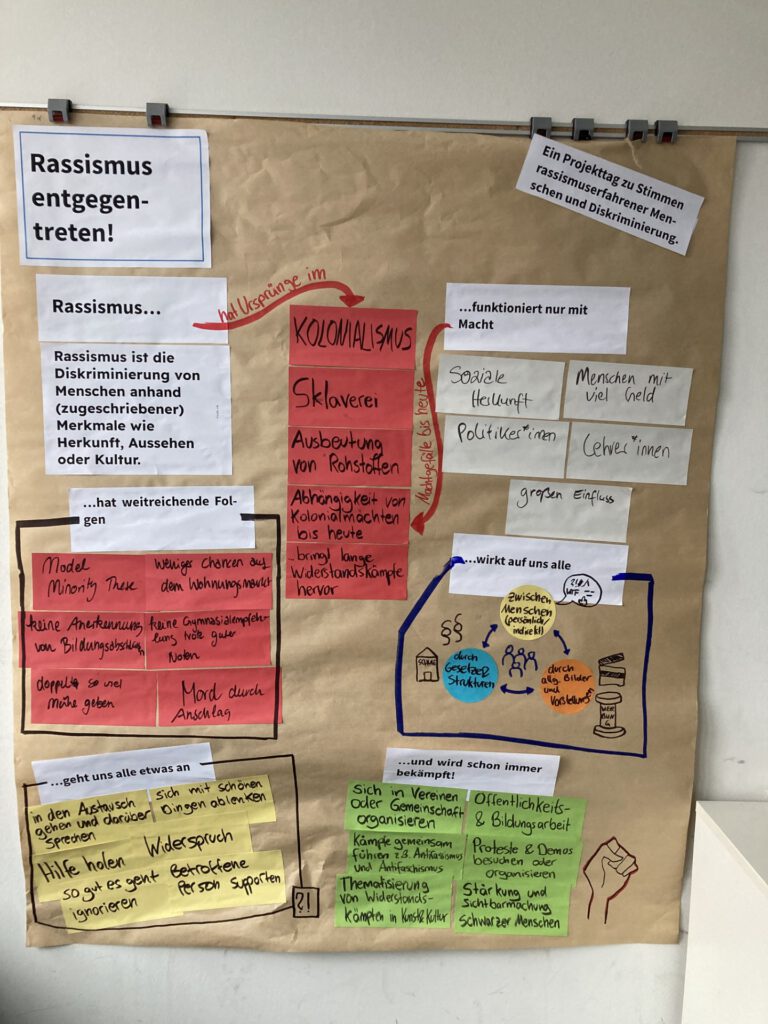 Rassismus
entgegen-
treten!
Ein Projekttag zu Stimmen
rassismuserfahrener Men-
schen und Diskriminierung.
Rassismus...
hat Ursprünge im
KOLONIALISMUS
Sklaverei
Ausbeutung
von Rohstoffen
Abhängigkeit von
Kolonialmächten
bis heute
...bringt lange
Widerstandskämpfe
hervor
Rassismus ist die
Diskriminierung von
Menschen anhand
(zugeschriebener)
Merkmale wie
Herkunft, Aussehen
oder Kultur.
...funktioniert nur mit
Macht
Machtgefälle bis heute
Soziale
Herkunft
Menschen mit
viel Geld
Politiker*innen
Lehrer*innen
großen Einfluss
...hat weitreichende Fol-
gen
Model
Minority These
Weniger Chancen auf
dem Wohnungsmarkt
keine Anerkennung
von Bildungsabschlüssen
keine Gymnasialempfeh-
lung trotz guter
Noten
doppelt so viel
Mühe geben
Mord durch
Anschlag
...wirkt auf uns alle
zwischen
Menschen
(persönlich/
indirekt)
§§
durch
Gesetze&
Strukturen
durch
allg. Bilder
und
Vorstellungen
WER
BUN
G
...geht uns alle etwas an
in den Austausch
gehen und darüber
sprechen
sich mit schönen
Dingen ablenken
Hilfe holen
Widerspruch
so gut es geht
ignorieren
Betroffene
Person supporten
?!
...und wird schon immer
bekämpft!
Sich in Vereinen
oder Gemeinschaft
organisieren
Öffentlichkeits-
& Bildungsarbeit
Kämpfe gemeinsam
führen z.B. Antirassismus
und Antifaschismus
Proteste & Demos
besuchen oder
organisieren
Thematisierung
von Widerstands-
kämpfen in Kunst & Kultur
Stärkung und
Sichtbarmachung
schwarzer Menschen